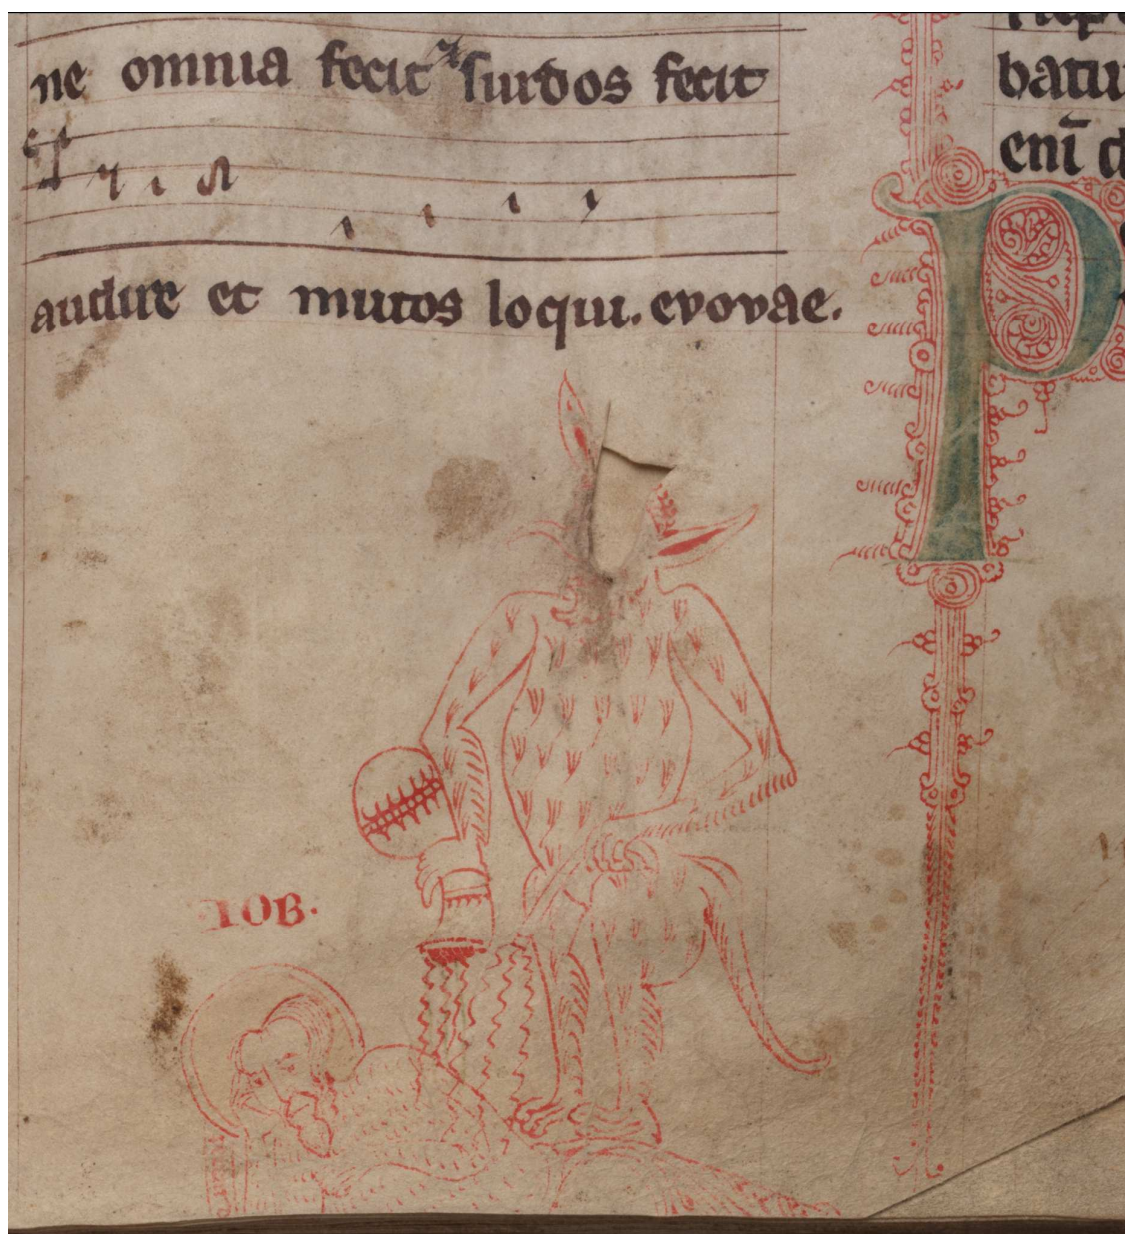 ne omnia fecit ⁊ surdos fecit
audire et mutos loqui. evovae.
IOB.
batu
eni̅ d
P